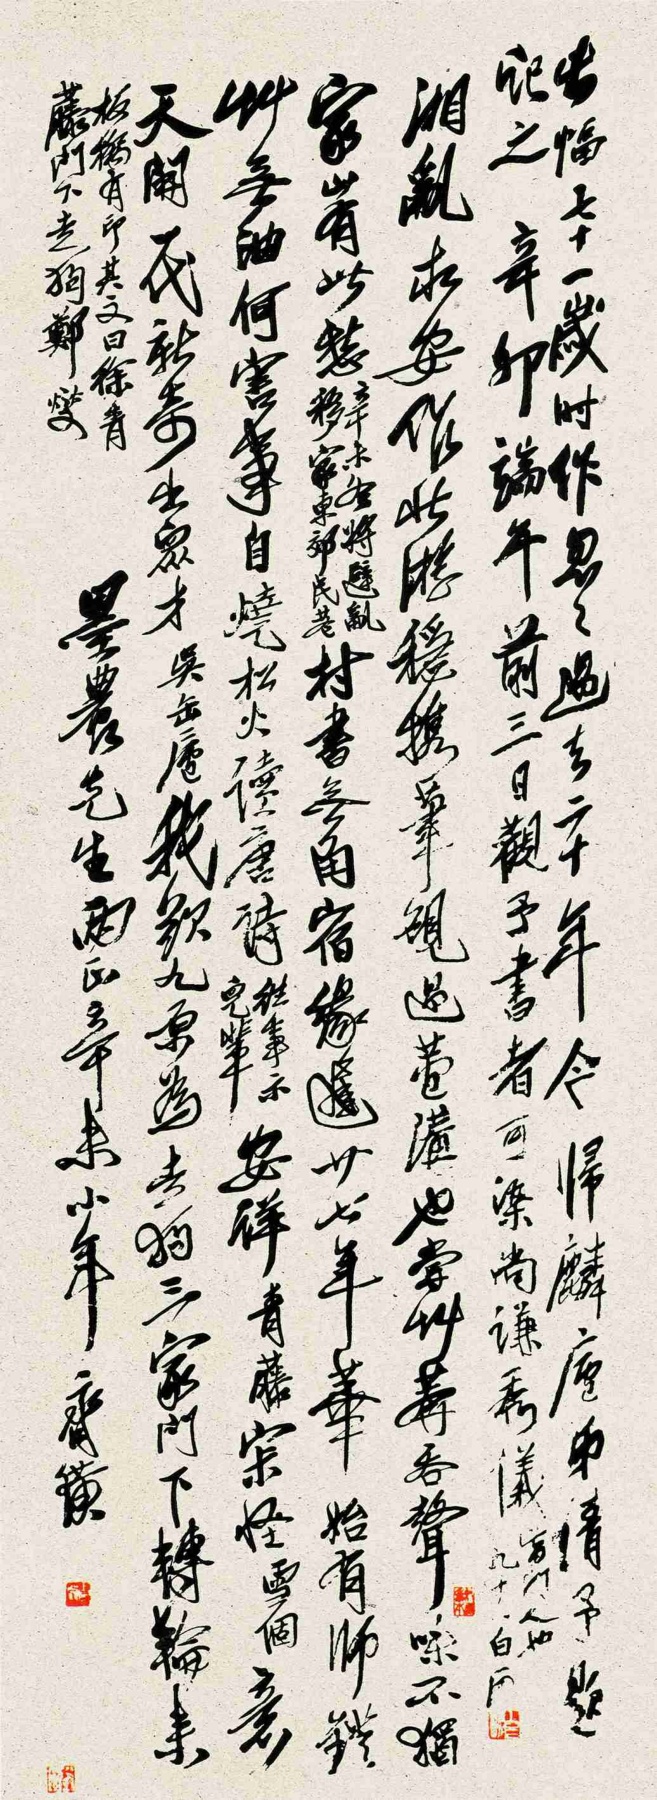 此幅七十一歲時作忽々過去二十年令歸麟廬弟請予題
記之 辛卯端午前三日觀予書者可染尚謙秀儀皆門人也
九十一白石
湘亂求安作此遊穩攜筆硯過蘆溝也嘗艸莽吞聲味不獨
家山有此愁
辛未冬將避亂
移家東郊民巷
村書無角宿緣遲廿七年華始有師鐙
艸無油何害事自燒松火讀唐詩
往事示
兒輩
安祥青藤宗怪雪個意
天開一代新奇出眾才吳缶廬我欲九原為走狗三家門下轉輪來
板橋有印其文曰徐青
藤門下走狗鄭燮
墨農先生兩正辛未小年 齊璜